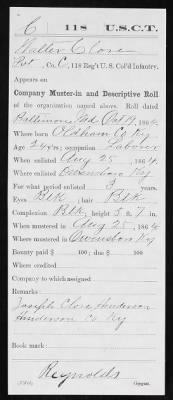 C | 118 | U.S.C.T.
Walter Close
Pvt., Co. C, 118 Reg't U. S. Col'd Infantry.
Appears on
Company Muster-in and Descriptive Roll
of the organization named above. Roll dated
Baltimore Md Oct 19, 1864.
Where born Oldham Co Ky
Age 24 y'rs; occupation Labourer
When enlisted Aug 25, 1864.
Where enlisted Owensboro Ky
For what period enlisted 3 years.
Eyes Blk; hair Blk
Complexion Blk; height 5 ft. in.
When mustered in Aug 25, 1864
Where mustered in Owensboro Ky
Bounty paid $ 100; due $ 100
Where credited
Company to which assigned
Remarks:
Joseph Close Anderson
Anderson Co Ky
Book mark:
Reynolds
Copyist.